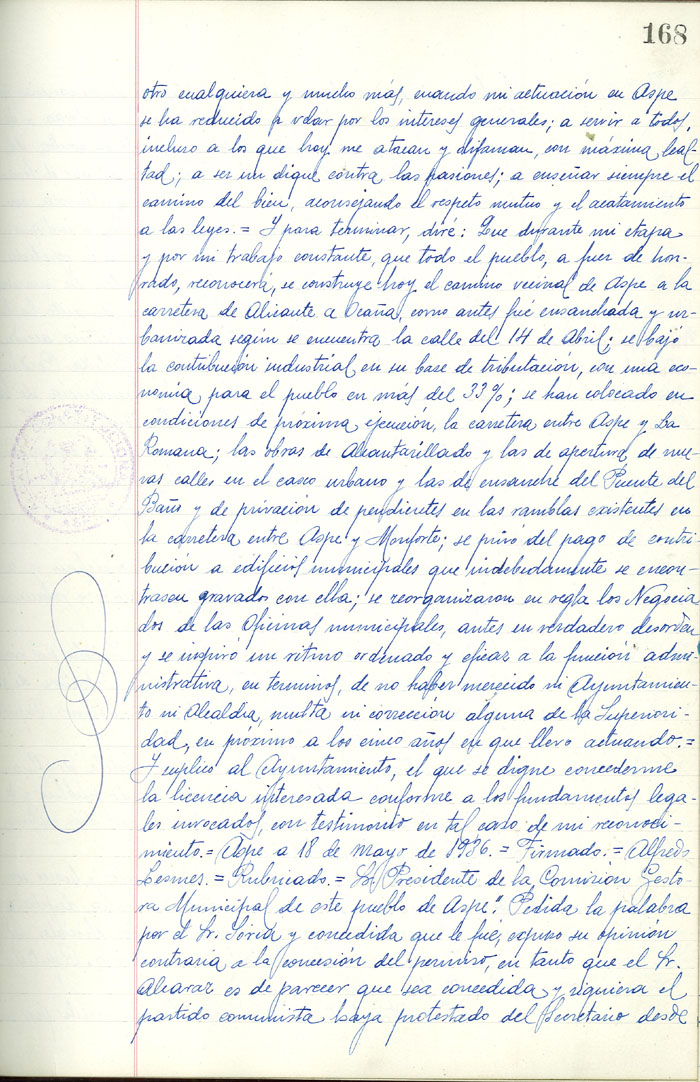 168
otro cualquiera y mucho más, cuando mi actuación en Aspe
se ha reducido a velar por los intereses generales; a servir a todos,
incluso a los que hoy me atacan y difaman, con máxima leal-
tad; a ser un dique contra las pasiones; a enseñar siempre el
camino del bien, aconsejando el respeto mutuo y el acatamiento
a las leyes.= Y para terminar, diré: Que durante mi etapa
y por mi trabajo constante, que todo el pueblo, a fuer de hon-
rado, reconocerá, se construye hoy el camino vecinal de Aspe a la
carretera de Alicante a Ocaña, como antes fué ensanchada y ur-
banizada según se encuentra la calle del 14 de Abril; se bajó
la contribución industrial en su base de tributación, con una eco-
nomía para el pueblo en más del 33%; se han colocado en
condiciones de próxima ejecución, la carretera entre Aspe y La
Romana; las obras de Alcantarillado y las de apertura de nue-
vas calles en el casco urbano y las de ensanche del Puente del
Baño y de privación de pendientes en las ramblas existentes en
la carretera entre Aspe y Monforte; se privó del pago de contri-
bución a edificios municipales que indebidamente se encon-
trasen gravados con ella; se reorganizaron en regla los Negocia
dos de las Oficinas municipales, antes en verdadero desorden
y se inspiró un ritmo ordenado y eficaz a la función admi-
nistrativa, en terminos, de no haber merecido ni Ayuntamien-
to ni Alcaldia, multa ni correccion alguna de la Superiori-
dad, en próximo a los cinco años en que llevo actuando.=
Suplico al Ayuntamiento, el que se digne concederme
la licencia interesada conforme a los fundamentos lega-
les invocados, con testimonio en tal caso de mi reconoci-
miento.= Aspe a 18 de Mayo de 1936.= Firmado.= Alfredo
Lesmes.= Rubricado.= Sr. Presidente de la Comisión Gesto-
ra Municipal de este pueblo de Aspe". Pedida la palabra
por el Sr. Soria y concedida que le fué, expuso su opinión
contraria a la concesión del permiso, en tanto que el Sr.
Alcaraz es de parecer que sea concedida y siquiera el
partido comunista haya protestado del Secretario desde